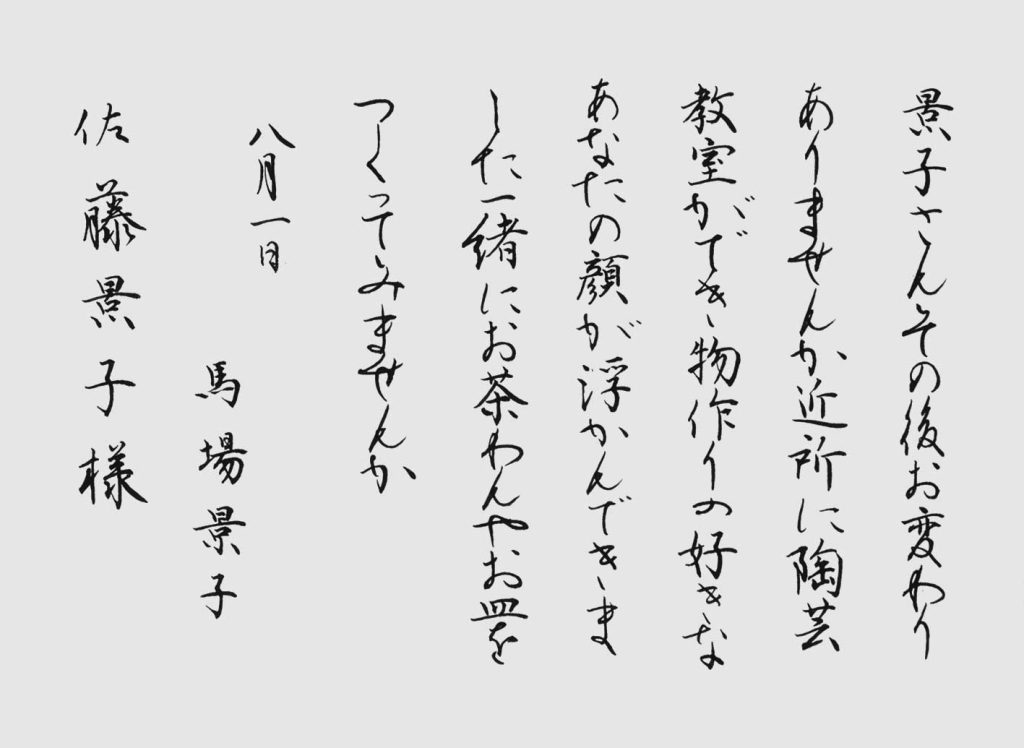 景子さんその後お変わり
ありませんか近所に陶芸
教室ができ物作りの好きな
あなたの顔が浮かんできま
した一緒にお茶わんやお皿を
つくってみませんか
八月一日
馬場景子
佐藤景子様